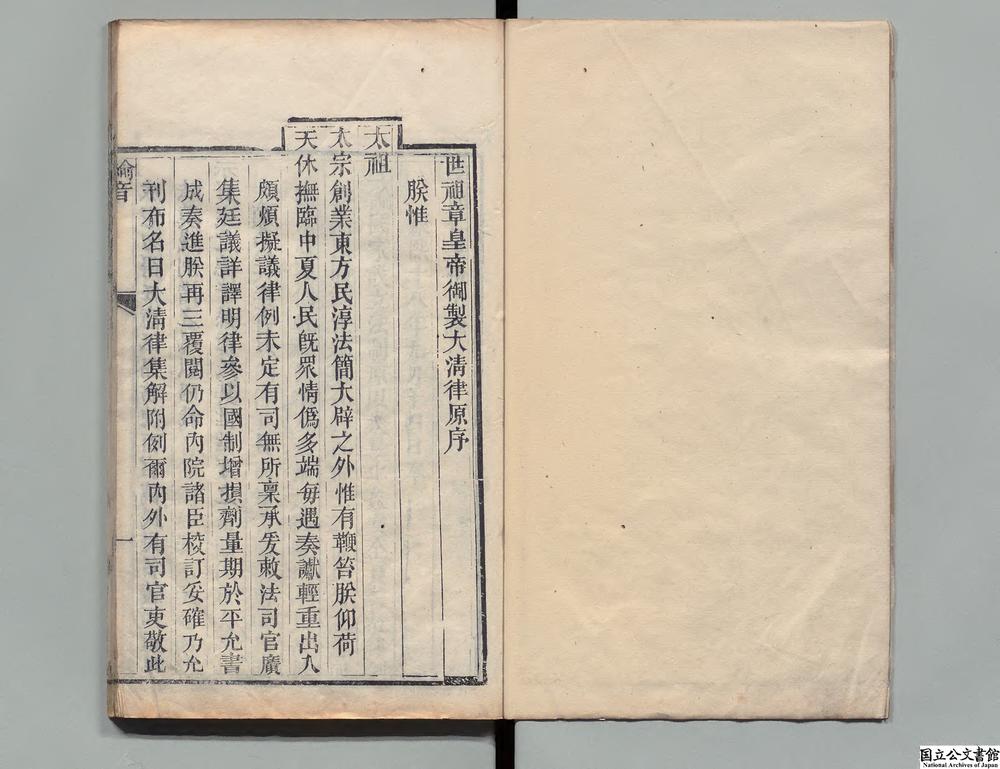 世祖章皇帝御製大淸律原序
朕惟
太祖
太宗創業東方民淳法簡大辟之外惟有鞭笞朕仰荷
天休撫臨中夏人民旣眾情僞多端每遇奏讞輕重出入
頗煩擬議律例未定有司無所稟承爰敕法司官廣
集廷議詳譯明律參以國制增損劑量期於平允書
成奏進朕再三覆閱仍命內院諸臣校訂妥確乃允
刊布名曰大淸律集解附例爾內外有司官吏敬此
諭音
一
国立公文書館
National Archives of Japan